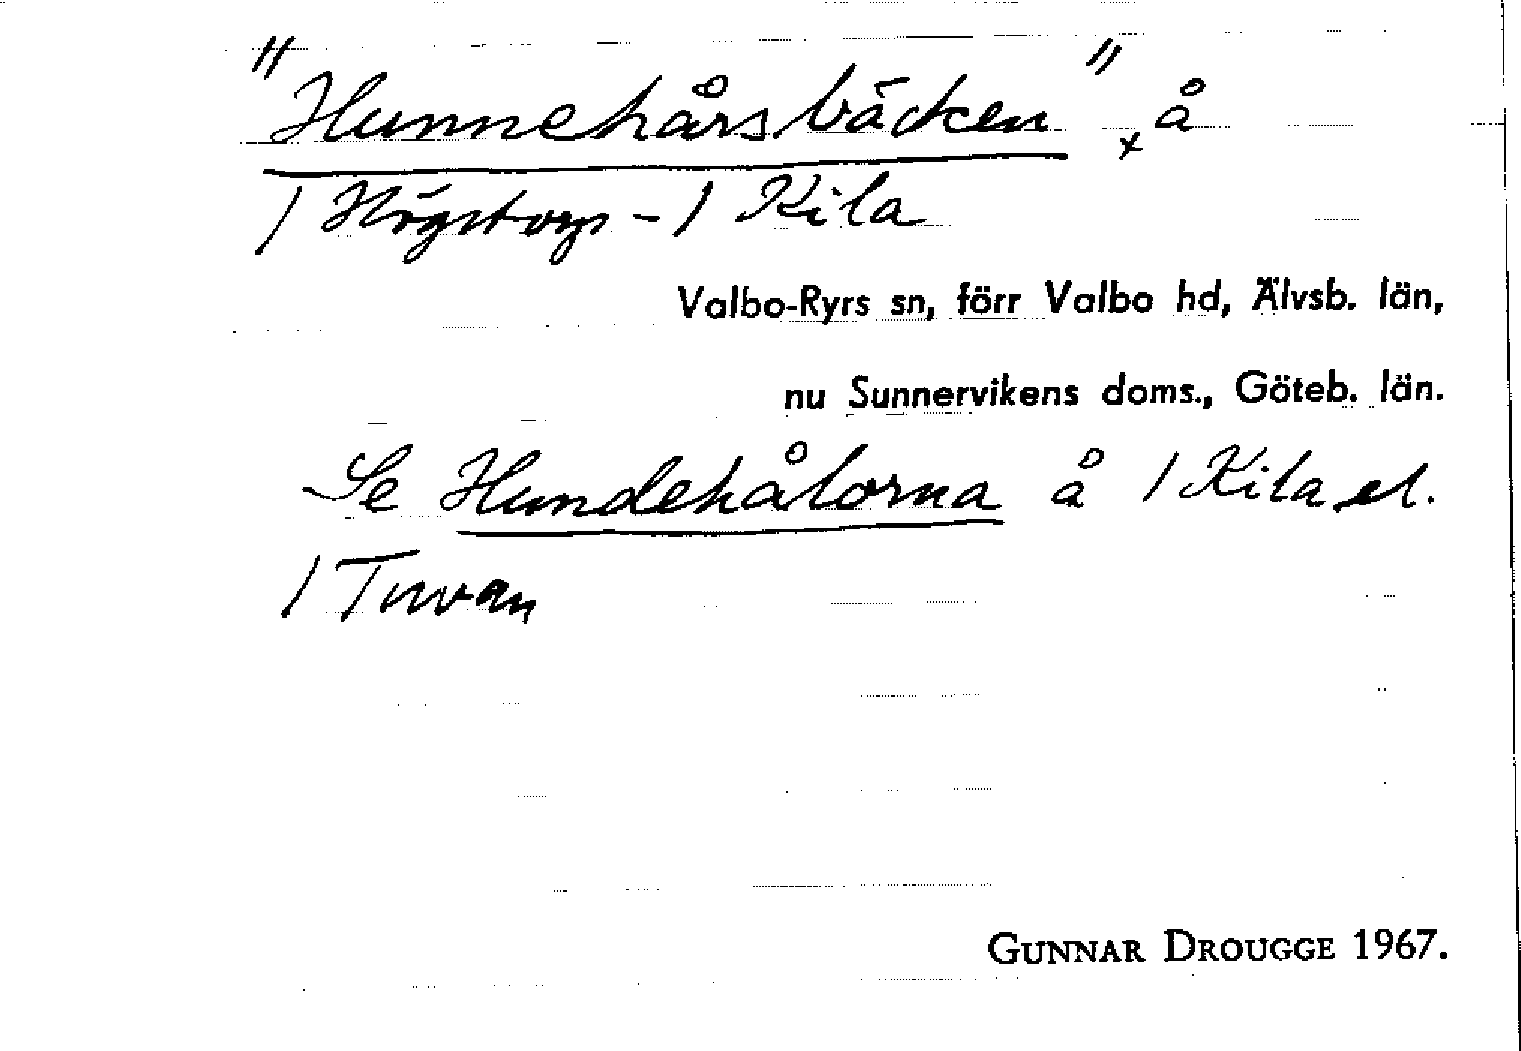 "Hunnehårsbäcken" x å
/ Högstorp - / Kila
Valbo-Ryrs sn, förr Valbo hd, Älvsb. län,
nu Sunnervikens doms., Göteb. län.
Se Hundehålorna å / Kila el.
/ Tuvan
GUNNAR DROUGGE 1967.